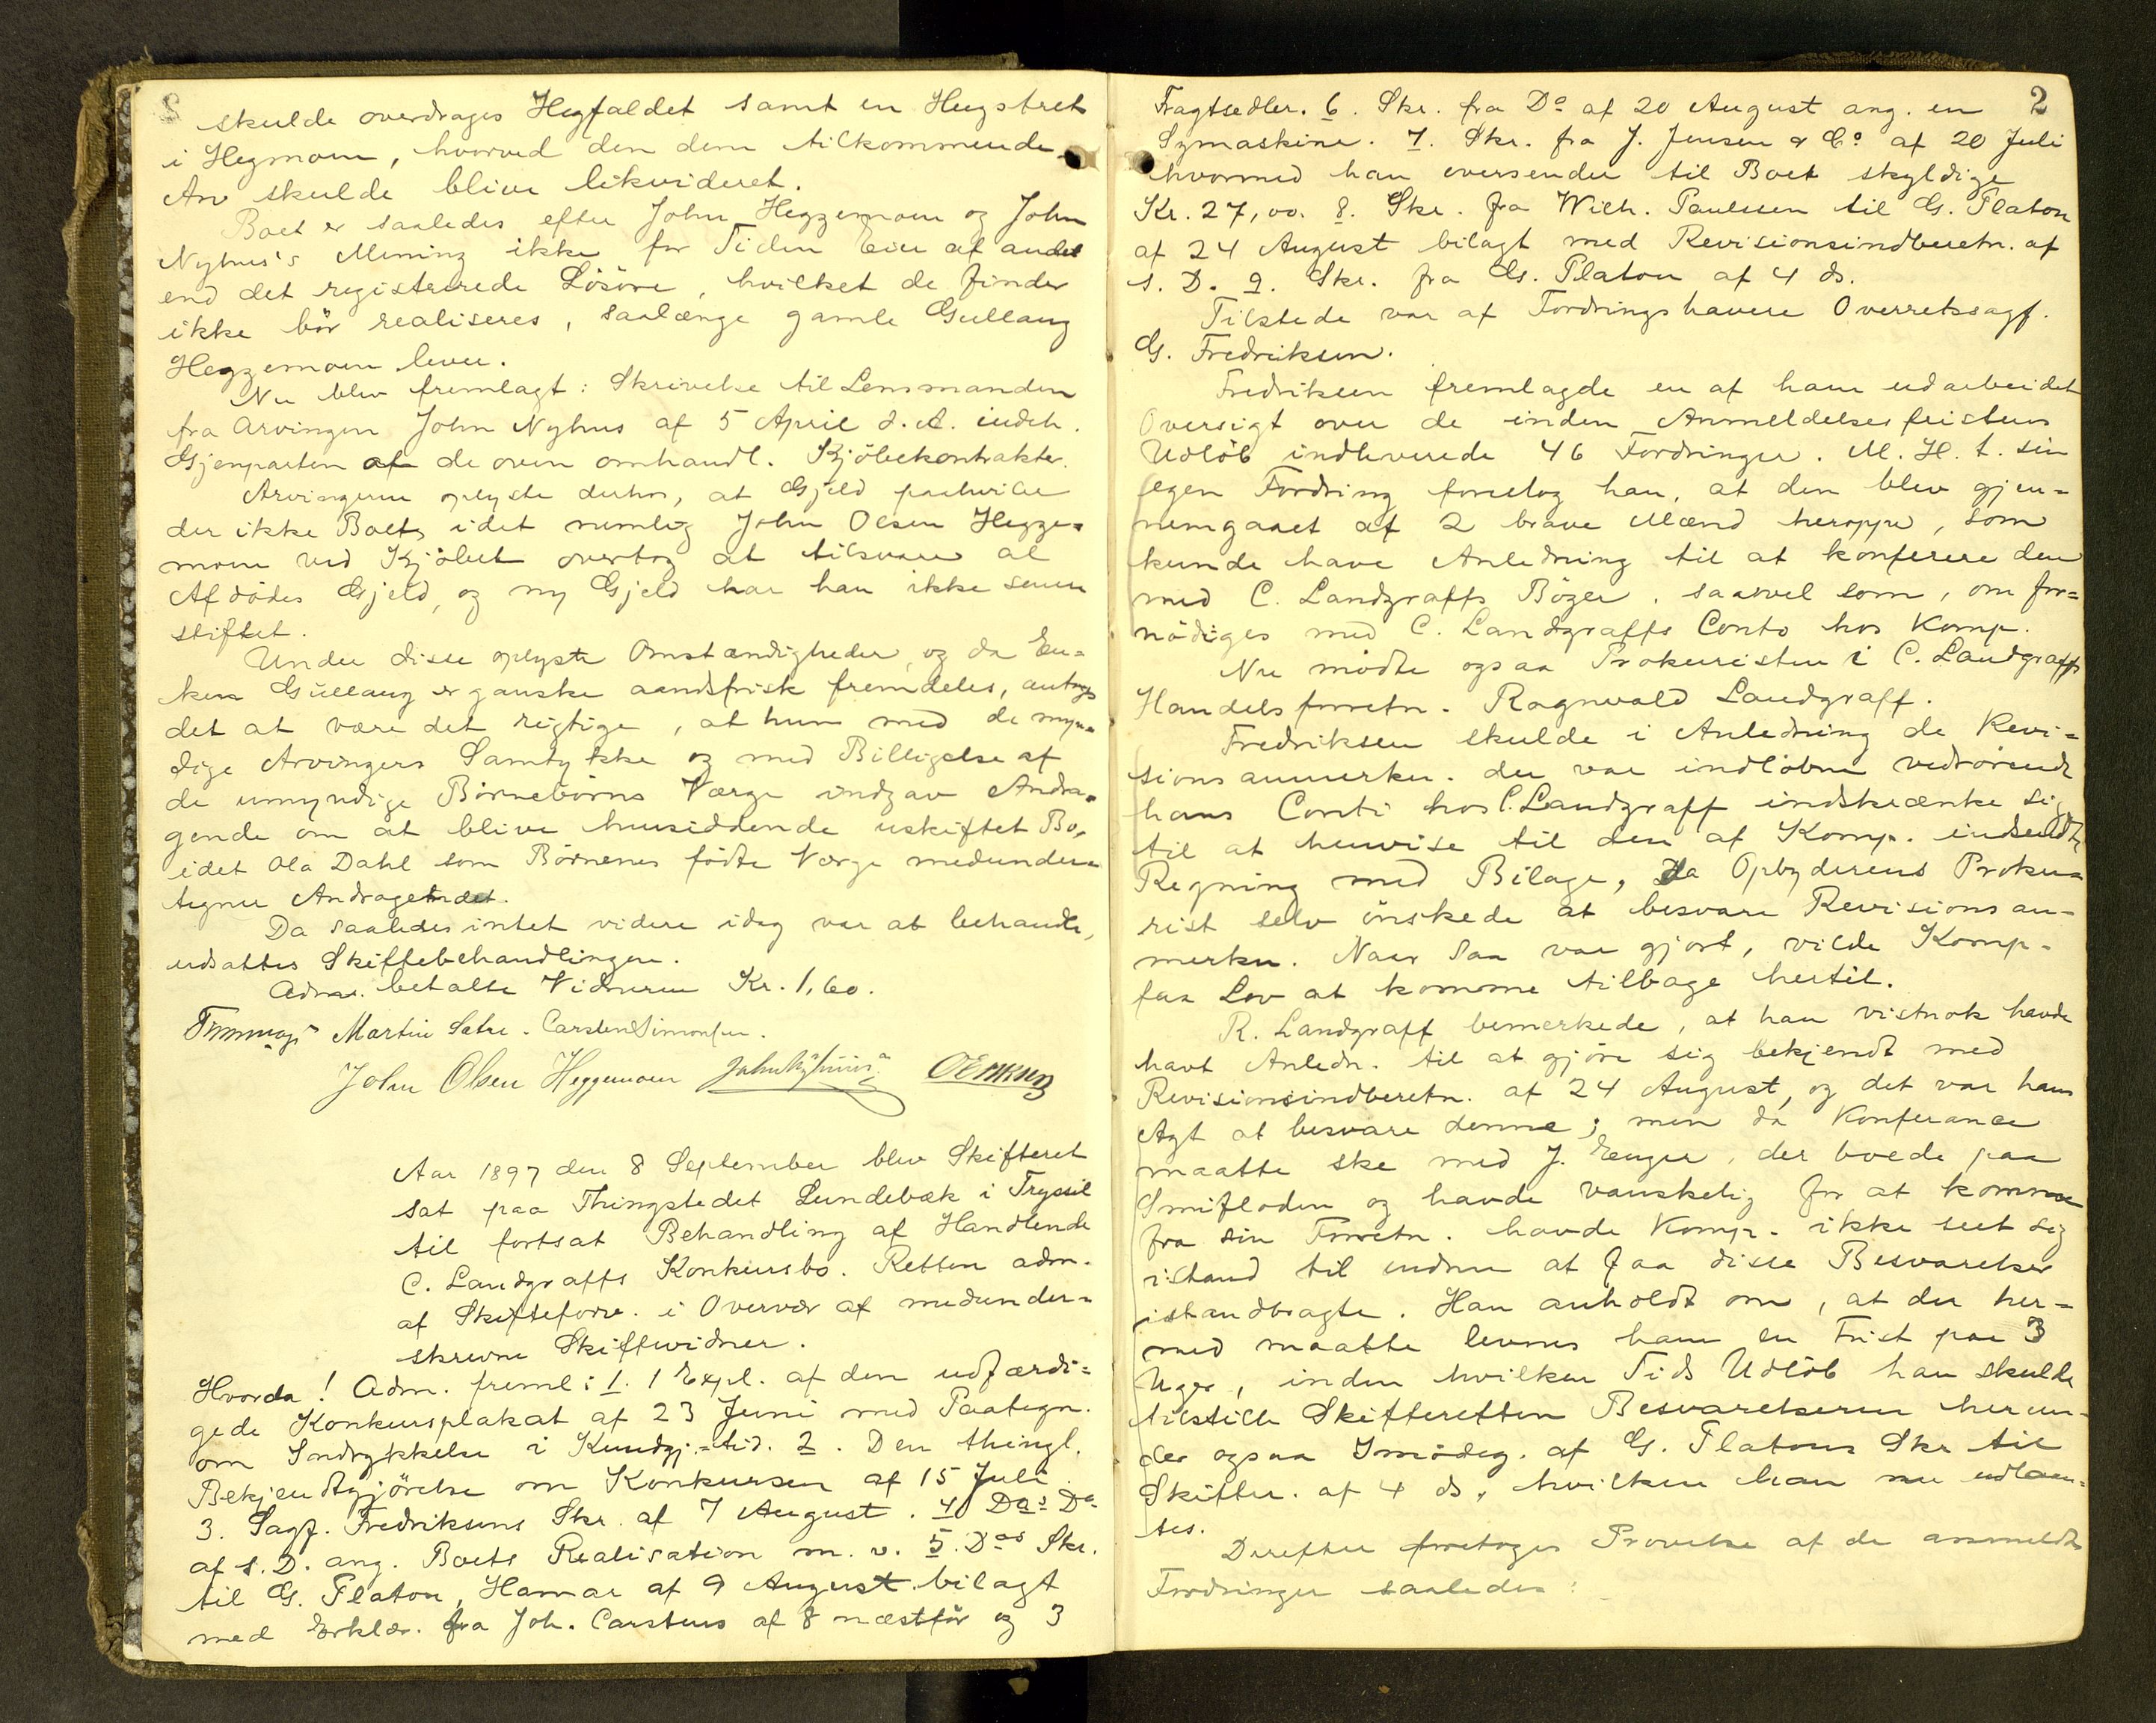 skulde overdrages Hegfaldet samt en Hugstret
i Hegmoen, hvorved den dem tilkommende
Arv skulde blive likvideret.
Boet er saaledes efter John Heggemoen og John
Nyhus's Mening ikke for Tiden Eier af andet
end det registrerede Lösöre, hvilket de finder
ikke bör realiseres, saalænge gamle Gullaug
Heggemoen lever.
Nu blev fremlagt: Skrivelse til Lensmanden
fra Arvingen John Nyhus af 5 April d. A. indeh.
Gjenparten af de oven omhandl. Kjöbekontrakter.
Arvingerne oplyste derhos, at Gjeld paahviler
der ikke Boet, idet nemlig John Olsen Hegge=
moen ved Kjöbet overtog at tilsvare al
Afdödes Gjeld, og ny Gjeld har han ikke senere
stiftet.
Under disse oplyste Omstændigheder, og da En=
ken Gullaug er ganske aandsfrisk fremdeles, antoges
det at være det rigtige, at hun med de myn=
dige Arvingers Samtykke og med Billigelse af
de umyndige Börnebörns Værge indgav Andra=
gende om at blive hensiddende i uskiftet Bo,
idet Ola Dahl som Börnenes födte Værge medunder=
tegner Andragendet.
Da saaledes intet videre idag var at behandle,
udsattes Skiftebehandlingen.
Adm. betalte Vidnerne Kr. 1,60.
Martin Sætre. Carsten Simonsen.
John Olsen Heggemoen John Nyhuus
Aar 1897 den 8 September blev Skifteret
sat paa Thingstedet Lundebæk i Trysil
til fortsat Behandling af Handlende
C. Landgraffs Konkursbo. Retten adm.
af Skifteforv. i Overvær af medunder=
skrevne Skiftevidner.
Hvorda! Adm. freml: 1. 1 Expl. af den udfærdi=
gede Konkursplakat af 23 Juni med Paategn.
om Indrykkelse i Kundgj.=tid. 2. Den thingl.
Bekjendtgjörelse om Konkursen af 15 Juli.
3. Sagf. Fredriksens Skr. af 7 August. 4) Dos Do
af s. D. ang. Boets Realisation m. v. 5. Dos Skr.
til G. Platou, Hamar af 9 August bilagt
med Erklær. fra Joh. Carstens af 8 næstför og 3
2
Fragtsedler. 6. Skr. fra Do af 20 August ang. en
Symaskine. 7. Skr. fra J. Jensen & Co af 20 Juli
hvormed han oversender til Boet skyldige
Kr. 27,00. 8. Skr. fra Wilh. Paulssen til G. Platou
af 24 August bilagt med Revisionsindberetn. af
s. D. 9. Skr. fra G. Platou af 4 ds.
Tilstede var af Fordringshavere Overretssagf.
G. Fredriksen.
Fredriksen fremlagde en af ham udarbeidet
Oversigt over de inden Anmeldelsesfristens
Udlöb indleverede 46 Fordringer. M. H. t. sin
egen Fordring foreslog han, at den blev gjen=
nemgaaet af 2 brave Mænd heroppe, som
kunde have Anledning til at konferere den
med C. Landgraffs Böger, saavel som, om for=
nödiges med C. Landgraffs Conto hos Komp.
Nu mödte ogsaa Prokuristen i C. Landgraffs
Handelsforretn. Ragnvald Landgraff.
Fredriksen skulde i Anledning de Revi=
sionsanmerkn. der var indlöbne vedrörende
hans Conti hos C. Landgraff indskrænke sig
til at henvise til den af Komp. indsendte
Regning med Bilage, da Opbyderens Proku=
rist selv önskede at besvare Revisionsan=
merkn. Naar saa var gjort, vilde Komp.
faa Lov at komme tilbage hertil.
R. Landgraff bemerkede, at han vistnok havde
havt Anledn. til at gjöre sig bekjendt med
Revisionsindberetn. af 24 August, og det var hans
Agt at besvare denne; men da Konferance
maatte ske med J. Enger, der boede paa
Smifloden og havde vanskelig for at komme
fra sin Forretn. havde Komp. ikke seet sig
istand til endnu at faa disse Besvarelser
istandbragte. Han anholdt om, at der her=
med maatte levnes ham en Frist paa 3
Uger, inden hvilken Tids Udlöb han skulde
tilstille Skifteretten Besvarelserne herun=
der ogsaa Imödeg. af G. Platous Skr til
Skifter. af 4 ds, hvilken han nu udlaan=
tes.
Derefter foretoges Prövelse af de anmeldte
Fordringer saaledes: